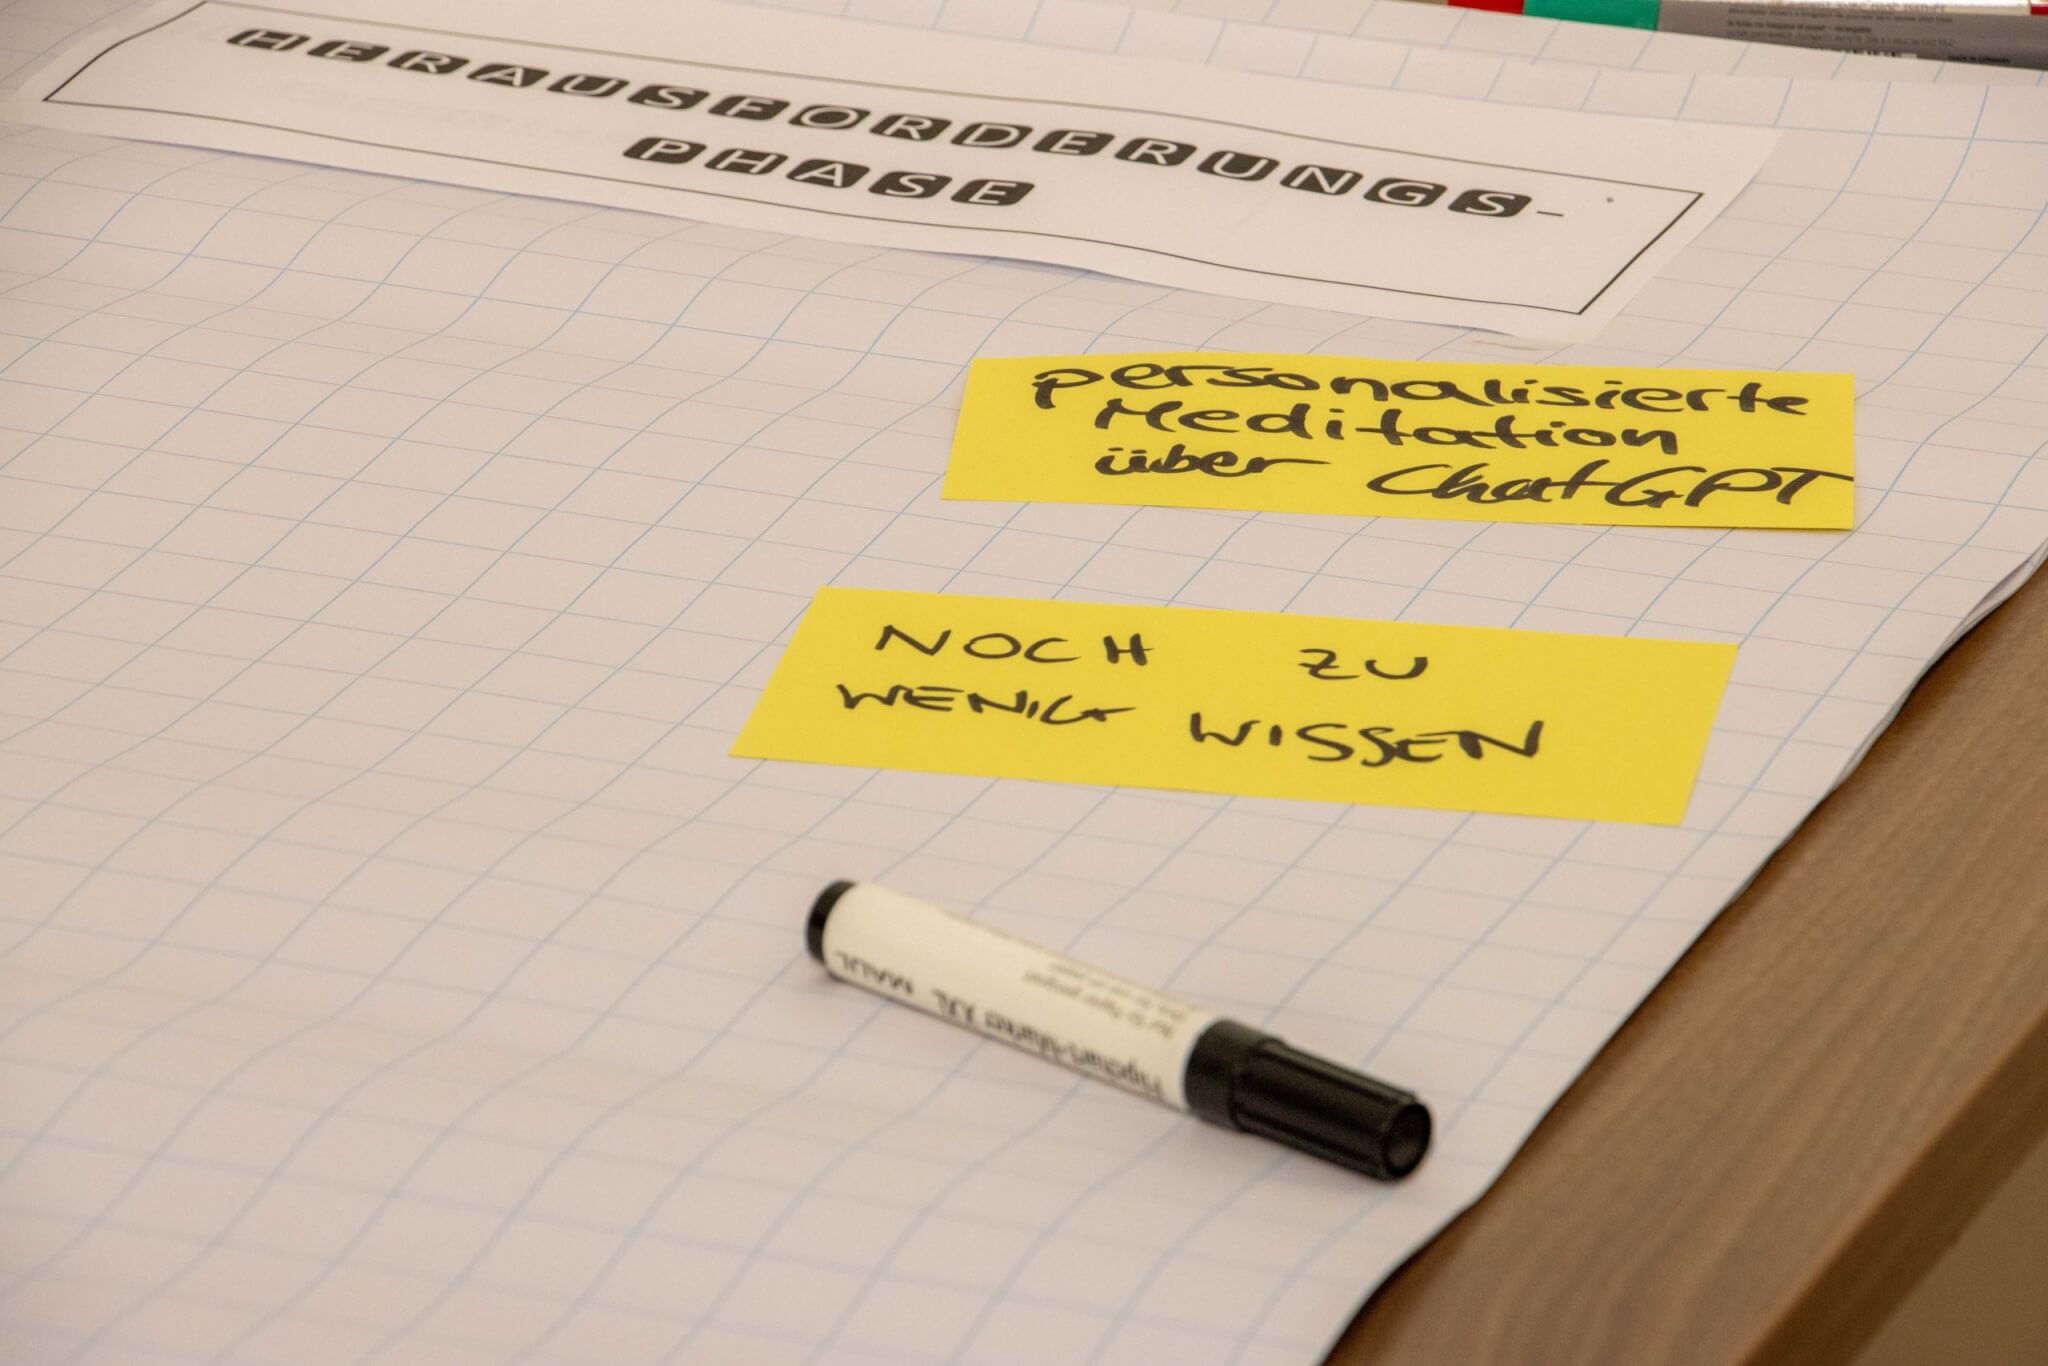 HERAUSFORDERUNGS-
PHASE
personalisierte
Meditation
über ChatGPT
NOCH ZU
WENIG WISSEN
Flipchart-Marker XXL MAUL